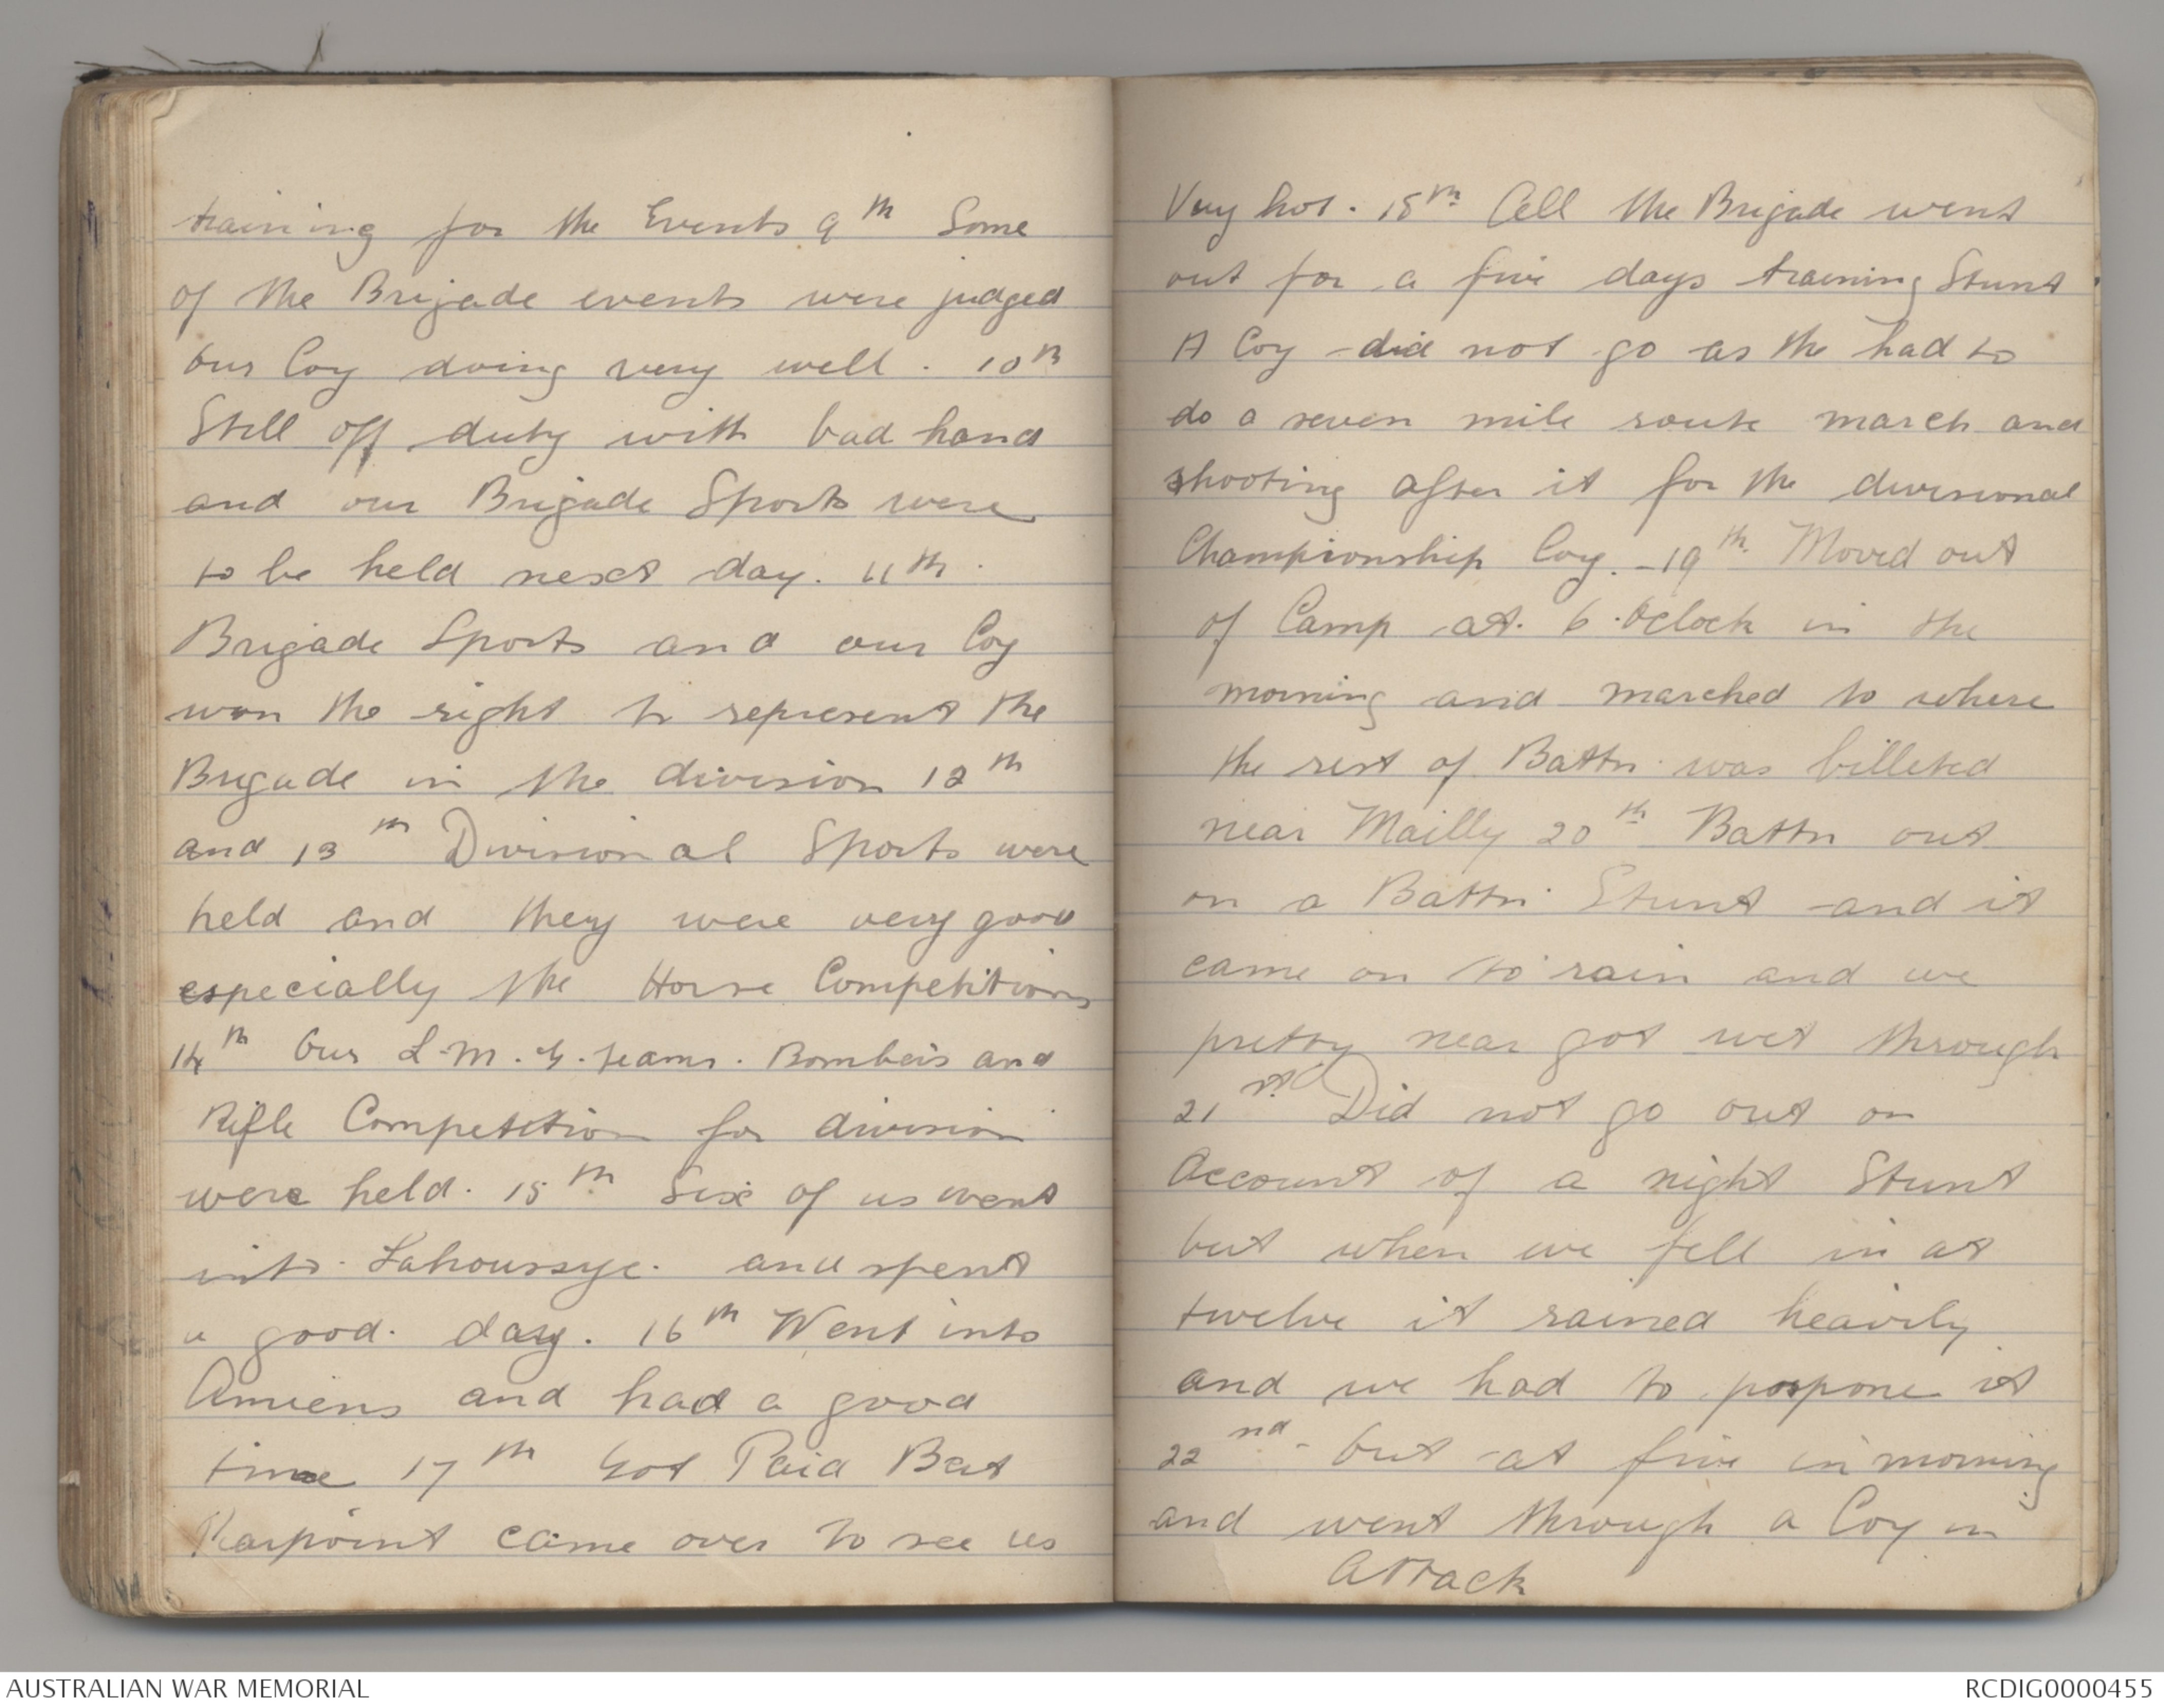 training for the Events 9th Some
of the Brigade events were judged
our Coy doing very well. 10th
Still off duty with bad hand
and our Brigade Sports were
to be held next day. 11th.
Brigade Sports and our Coy
won the right to represent the
Brigade in the division 12th
and 13th Divisional Sports were
held and they were very good
especially the Horse Competitions
14th Our L.M.G. teams. Bombers and
Rifle Competition for division
were held. 15th Six of us went
into Lahoussye. and spent
a good. day. 16th Went into
Amiens and had a good
time 17th Got Paid Bert
Pierpoint came over to see us
Very hot. 18th. All the Brigade went
out for a five days training Stunt
A Coy did not go as the had to
do a seven mile route march and
shooting after it for the divisional
Championship Coy. - 19th. Moved out
of Camp at. 6. Oclock in the
morning and marched to where
the rest of Battn. was billeted
near Mailly 20th Battn out
on a Battn. Stunt and it
came on to rain and we
pretty near got wet through
21st Did not go out on
Account of a night Stunt
but when we fell in at
twelve it rained heavily
and we had to pospone it
22nd - but at five in morning
and went through a Coy in
Attack
AUSTRALIAN WAR MEMORIAL
RCDIG0000455